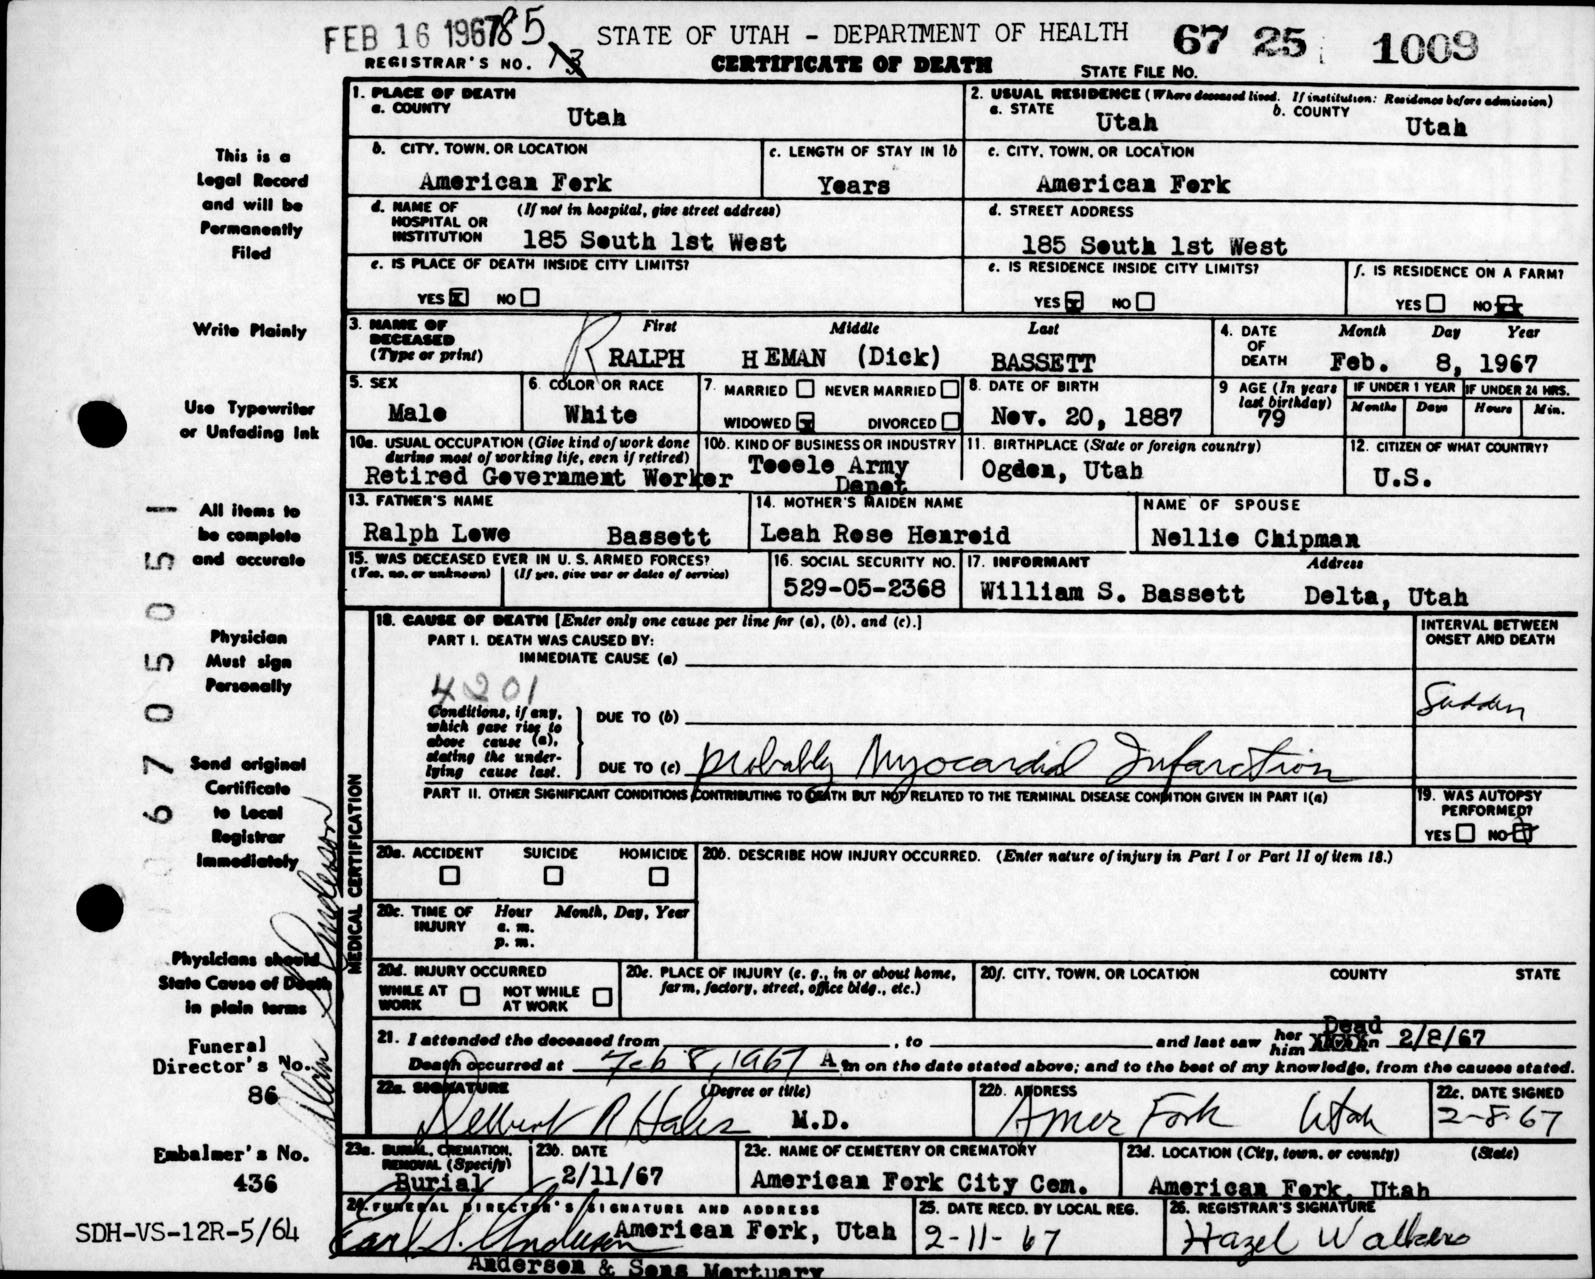 FEB 16 1967 85 STATE OF UTAH - DEPARTMENT OF HEALTH 67 25 1009
REGISTRAR'S NO. CERTIFICATE OF DEATH STATE FILE NO.
1. PLACE OF DEATH
a. COUNTY
Utah
2. USUAL RESIDENCE (Where deceased lived. If institution: Residence before admission)
a. STATE b. COUNTY
Utah Utah
b. CITY, TOWN, OR LOCATION
American Fork
c. LENGTH OF STAY IN 1b
Years
c. CITY, TOWN, OR LOCATION
American Fork
d. NAME OF HOSPITAL OR INSTITUTION (If not in hospital, give street address)
185 South 1st West
d. STREET ADDRESS
185 South 1st West
e. IS PLACE OF DEATH INSIDE CITY LIMITS?
YES x NO
e. IS RESIDENCE INSIDE CITY LIMITS?
YES x NO
f. IS RESIDENCE ON A FARM?
YES NO xx
3. NAME OF DECEASED (Type or print)
First Middle Last
R RALPH HEMAN (Dick) BASSETT
4. DATE OF DEATH Month Day Year
Feb. 8, 1967
5. SEX
Male
6. COLOR OR RACE
White
7. MARRIED NEVER MARRIED
WIDOWED x DIVORCED
8. DATE OF BIRTH
Nov. 20, 1887
9 AGE (In years last birthday)
79
IF UNDER 1 YEAR IF UNDER 24 HRS.
Months Days Hours Min.
10a. USUAL OCCUPATION (Give kind of work done during most of working life, even if retired)
Retired Government Worker
10b. KIND OF BUSINESS OR INDUSTRY
Tooele Army
Depot
11. BIRTHPLACE (State or foreign country)
Ogden, Utah
12. CITIZEN OF WHAT COUNTRY?
U.S.
13. FATHER'S NAME
Ralph Lowe Bassett
14. MOTHER'S MAIDEN NAME
Leah Rose Henroid
NAME OF SPOUSE
Nellie Chipman
15. WAS DECEASED EVER IN U. S. ARMED FORCES?
(Yes, no, or unknown) (If yes, give war or dates of service)
16. SOCIAL SECURITY NO.
529-05-2368
17. INFORMANT Address
William S. Bassett Delta, Utah
18. CAUSE OF DEATH [Enter only one cause per line for (a), (b), and (c).]
PART I. DEATH WAS CAUSED BY:
IMMEDIATE CAUSE (a)
INTERVAL BETWEEN ONSET AND DEATH
4201
Conditions, if any, which gave rise to above cause (a), stating the underlying cause last.
DUE TO (b)
Sudden
DUE TO (c) probably Myocardial Infarction
PART II. OTHER SIGNIFICANT CONDITIONS CONTRIBUTING TO DEATH BUT NOT RELATED TO THE TERMINAL DISEASE CONDITION GIVEN IN PART I(a)
19. WAS AUTOPSY PERFORMED?
YES NO
20a. ACCIDENT SUICIDE HOMICIDE
20b. DESCRIBE HOW INJURY OCCURRED. (Enter nature of injury in Part I or Part II of item 18.)
20c. TIME OF INJURY Hour Month, Day, Year
a. m.
p. m.
20d. INJURY OCCURRED
WHILE AT WORK NOT WHILE AT WORK
20e. PLACE OF INJURY (e. g., in or about home, farm, factory, street, office bldg., etc.)
20f. CITY, TOWN, OR LOCATION COUNTY STATE
21. I attended the deceased from , to and last saw her him Dead on 2/8/67
Death occurred at Feb 8, 1967 A m on the date stated above; and to the best of my knowledge, from the causes stated.
22a. SIGNATURE (Degree or title)
Delbert R Hales M.D.
22b. ADDRESS
Amer Fork Utah
22c. DATE SIGNED
2-8-67
23a. BURIAL, CREMATION, REMOVAL (Specify)
Burial
23b. DATE
2/11/67
23c. NAME OF CEMETERY OR CREMATORY
American Fork City Cem.
23d. LOCATION (City, town, or county) (State)
American Fork, Utah
24. FUNERAL DIRECTOR'S SIGNATURE AND ADDRESS
Earl S. Anderson American Fork, Utah
Anderson & Sons Mortuary
25. DATE RECD. BY LOCAL REG.
2-11-67
26. REGISTRAR'S SIGNATURE
Hazel Walkers
MEDICAL CERTIFICATION
This is a
Legal Record
and will be
Permanently
Filed
Write Plainly
Use Typewriter
or Unfading Ink
All items to
be complete
and accurate
Physician
Must sign
Personally
Send original
Certificate
to Local
Registrar
Immediately
Physicians should
State Cause of Death
in plain terms
Funeral
Director's No.
86
Embalmer's No.
436
SDH-VS-12R-5/64
67050551
Anderson